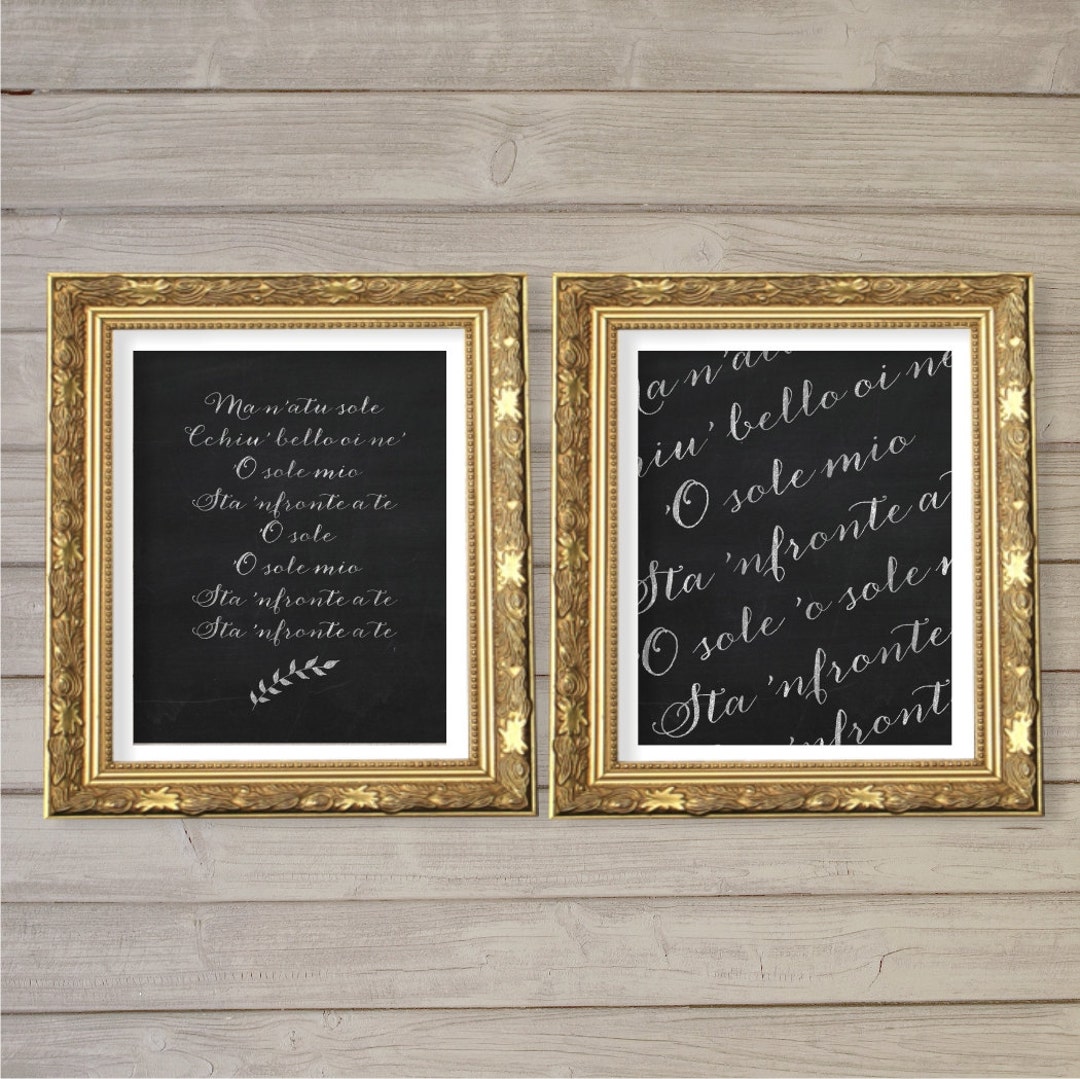 Ma n'atu sole
Cchiu' bello oi ne'
'O sole mio
Sta 'nfronte a te
'O sole
'O sole mio
Sta 'nfronte a te
Sta 'nfronte a te
n'atu
bello oi ne
'O sole mio
Sta 'nfronte a
O sole 'o sole
Sta 'nfronte
'nfront